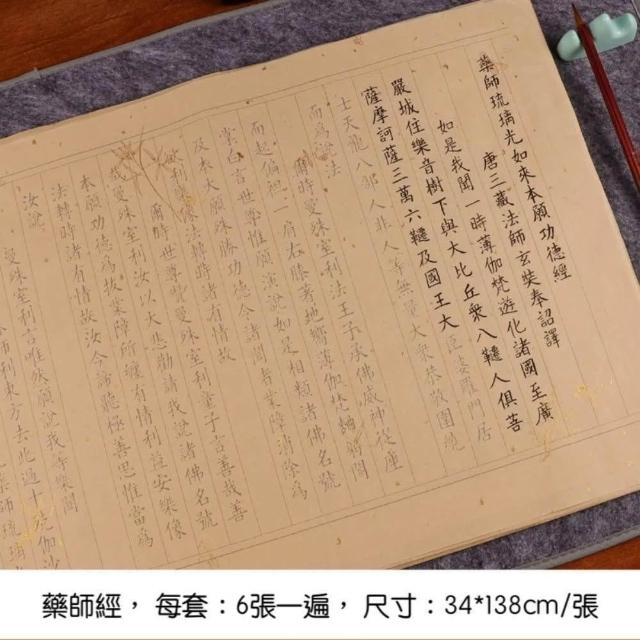 藥師琉璃光如來本願功德經
唐三藏法師玄奘奉詔譯
如是我聞一時薄伽梵遊化諸國至廣
嚴城住樂音樹下與大比丘衆八韆人俱菩
薩摩訶薩三萬六韆及國王大臣婆羅門居
士天龍八部人非人等無量大衆恭敬圍繞
而為說法
爾時曼殊室利法王子承佛威神從座
而起偏袒一肩右膝著地嚮薄伽梵
常白言世尊惟願演說如是相類諸佛名號
及本大願殊勝功德令諸聞者業障消除為
爾時世尊讚曼殊室利童子言善哉善
哉曼殊室利汝以大悲勸請我說諸佛名號
本願功德為拔業障所纏有情利益安樂像
法轉時諸有情故汝今諦聽極善思惟當為
汝說
曼殊室利言唯然願說我等樂聞
東方去此過十
藥師經， 每套：6張一遍， 尺寸：34*138cm/張